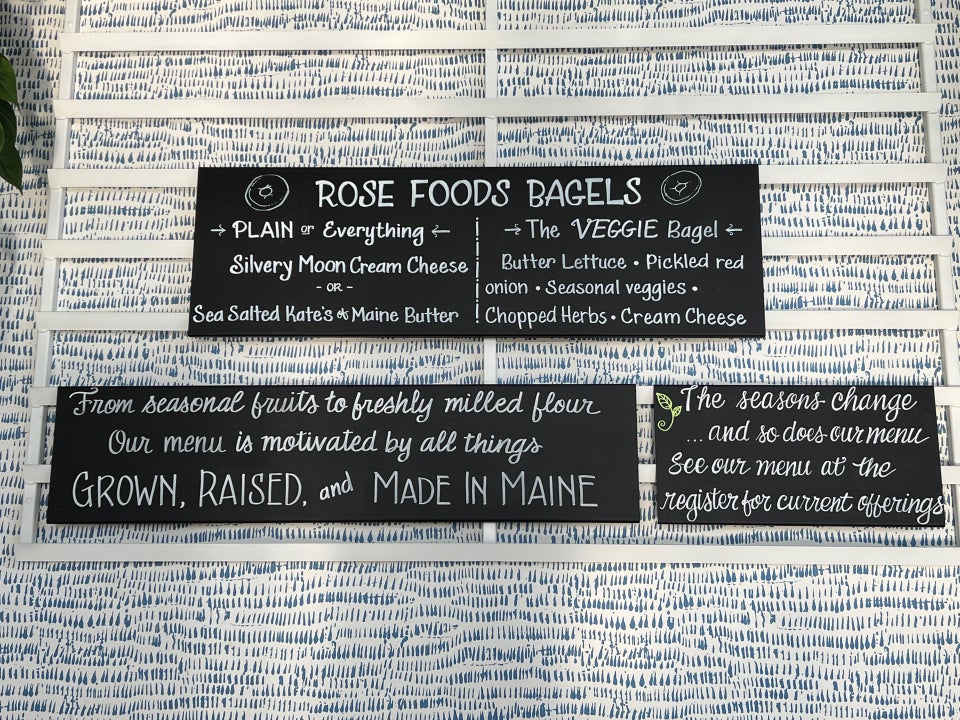 ROSE FOODS BAGELS
→ PLAIN or Everything ←
Silvery Moon Cream Cheese
- OR -
Sea Salted Kate's & Maine Butter
→ The VEGGIE Bagel ←
Butter Lettuce • Pickled red
onion • Seasonal veggies •
Chopped Herbs • Cream Cheese
From seasonal fruits to freshly milled flour
Our menu is motivated by all things
GROWN, RAISED, and MADE IN MAINE
The seasons change
...and so does our menu
See our menu at the
register for current offerings